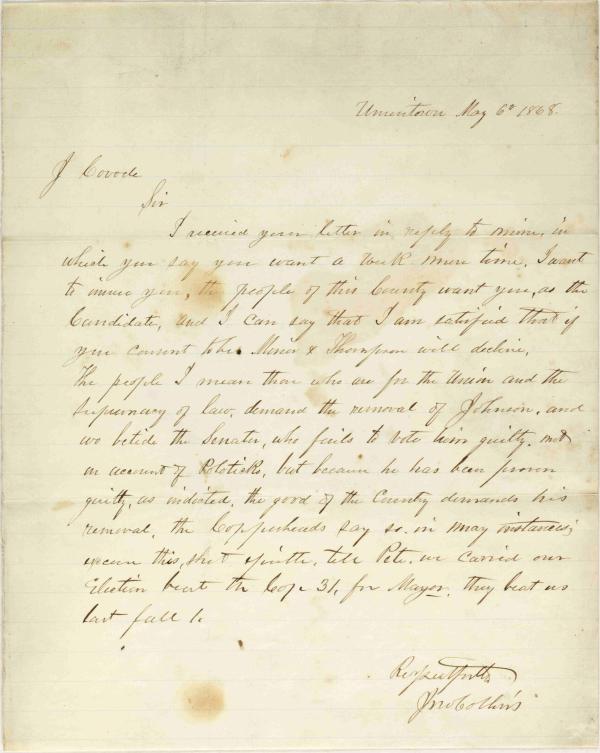 Uniontown May 6th 1868.
J Covode
Sir
I received your letter in reply to mine, in
which you say you want a week more time, I want
to inform you, the people of this County want you, as the
Candidate, and I can say that I am satisfied that if
you consent to be Minor & Thompson will decline,
The people I mean those who are for the Union and the
Supremacy of law, demand the removal of Johnson, and
wo betide the Senater, who fails to vote him guilty. not
on account of Poloticks, but because he has been proven
guilty, as indicted, the good of the Country demands his
removal, the Copperheads say so, in many instances;
excuse this, short epistle, tell Pete, we carried our
Election beat the Cops 31, for Mayor, they beat us
last fall 1.
Respectfully
Jno Collins